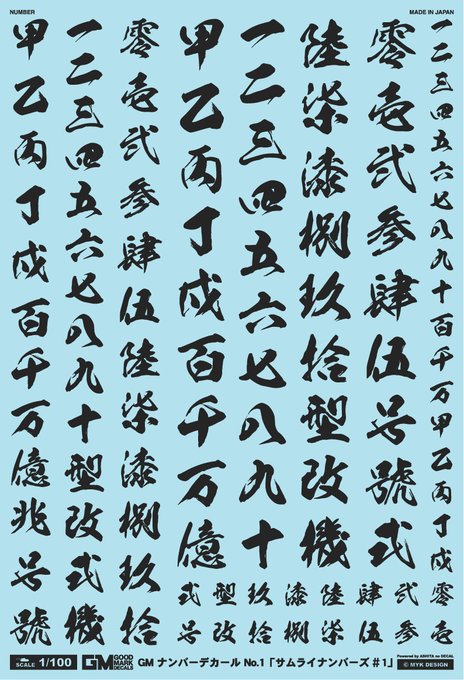 NUMBER
MADE IN JAPAN
一二三四五六七八九十百千万甲乙丙丁戊零壱
零壱弐参肆伍号號式
陸柒漆捌玖拾型改機
一二三四五六七八九十
甲乙丙丁戊百千万億
弐参
肆伍
陸柒
漆捌
玖拾
型改
式号
零壱弐参肆伍陸柒漆捌玖拾
一二三四五六七八九十型改式機
甲乙丙丁戊百千万億兆号號
SCALE 1/100
GM GOOD MARK DECALS
GM ナンバーデカール No.1「サムライナンバーズ#1」
Powered by ASHITA no DECAL
© MYK DESIGN